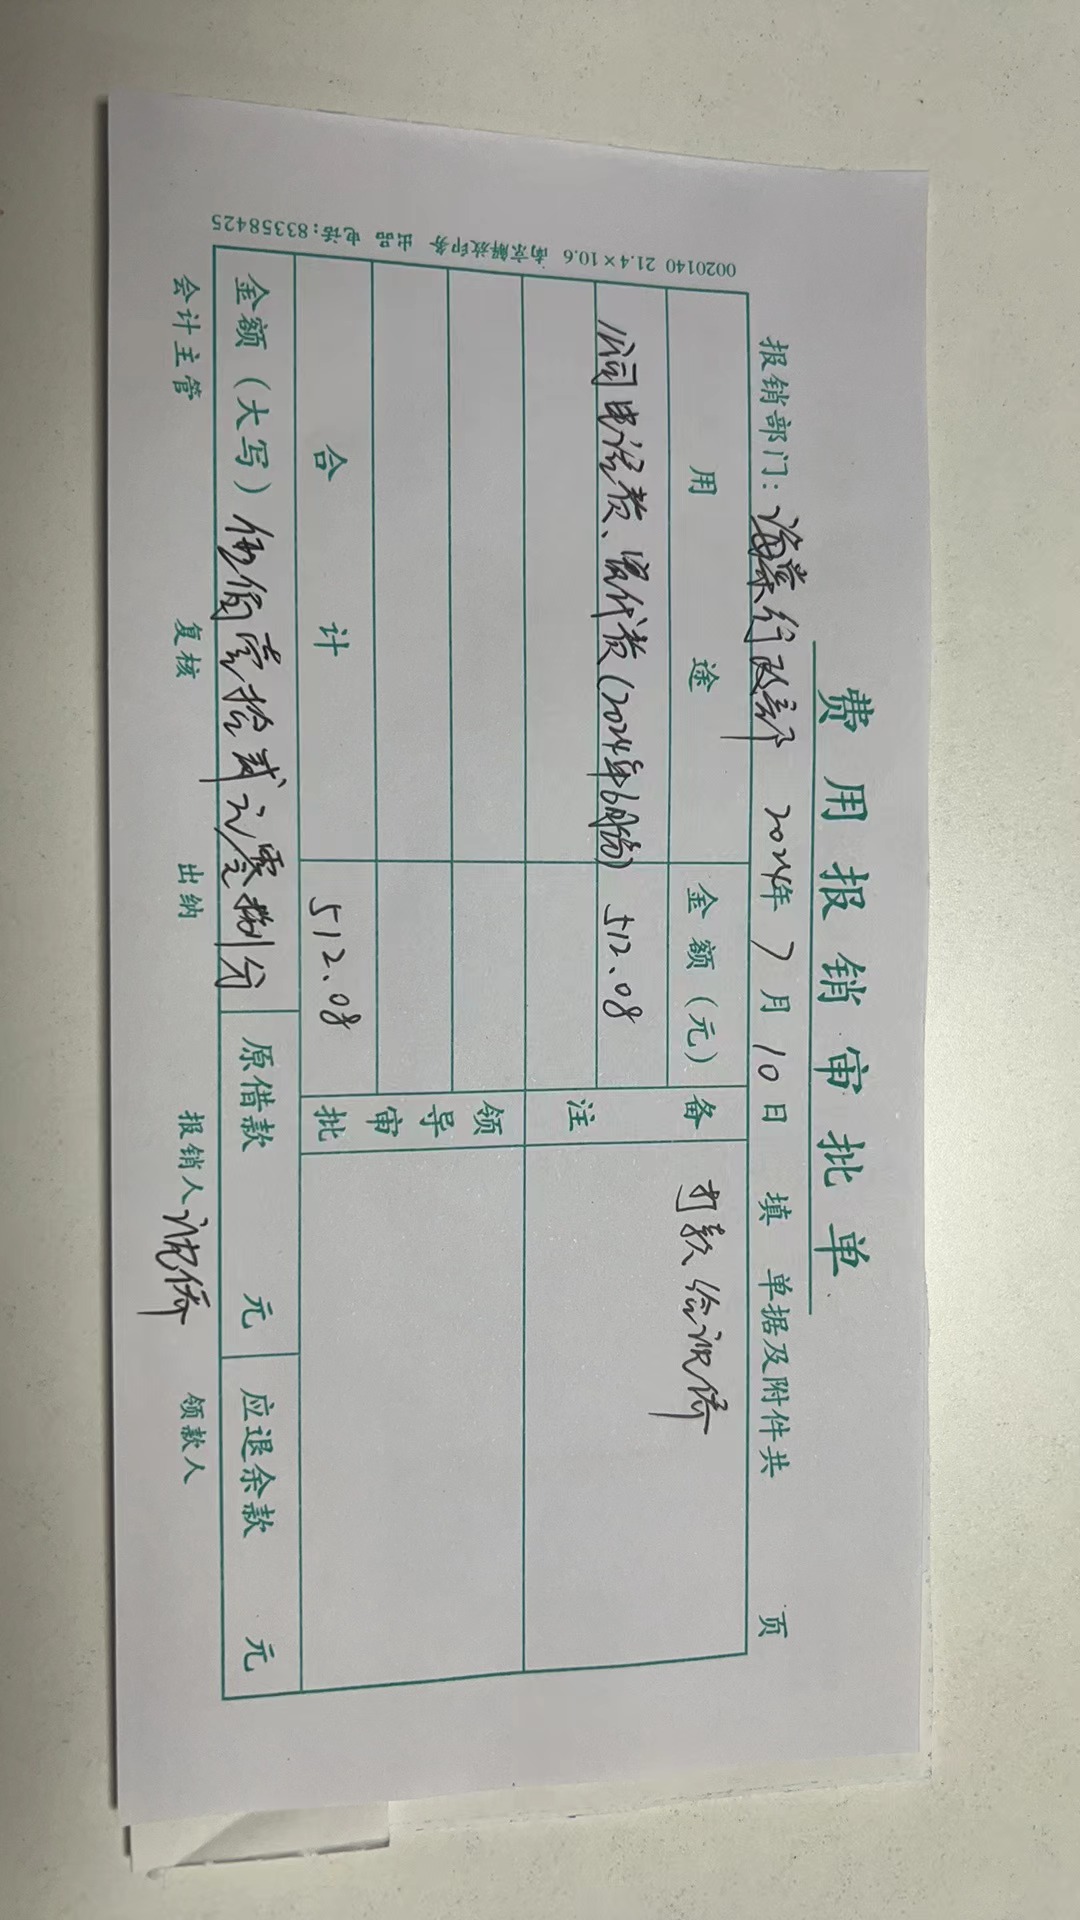 费用报销审批单
报销部门：海棠行政部 2024年 7月 10日 填 单据及附件共 页
用 途 金额（元） 备注 打款给 侨
公司电话费、宽代费（2024年6月份） 512.08
领导审批
合 计 512.08
金额（大写）伍佰壹拾贰元零捌分 原借款 元 应退余款 元
会计主管 复核 出纳 报销人 侨 领款人
0020140 21.4×10.6 南京解放印务 出品 电话:83358425